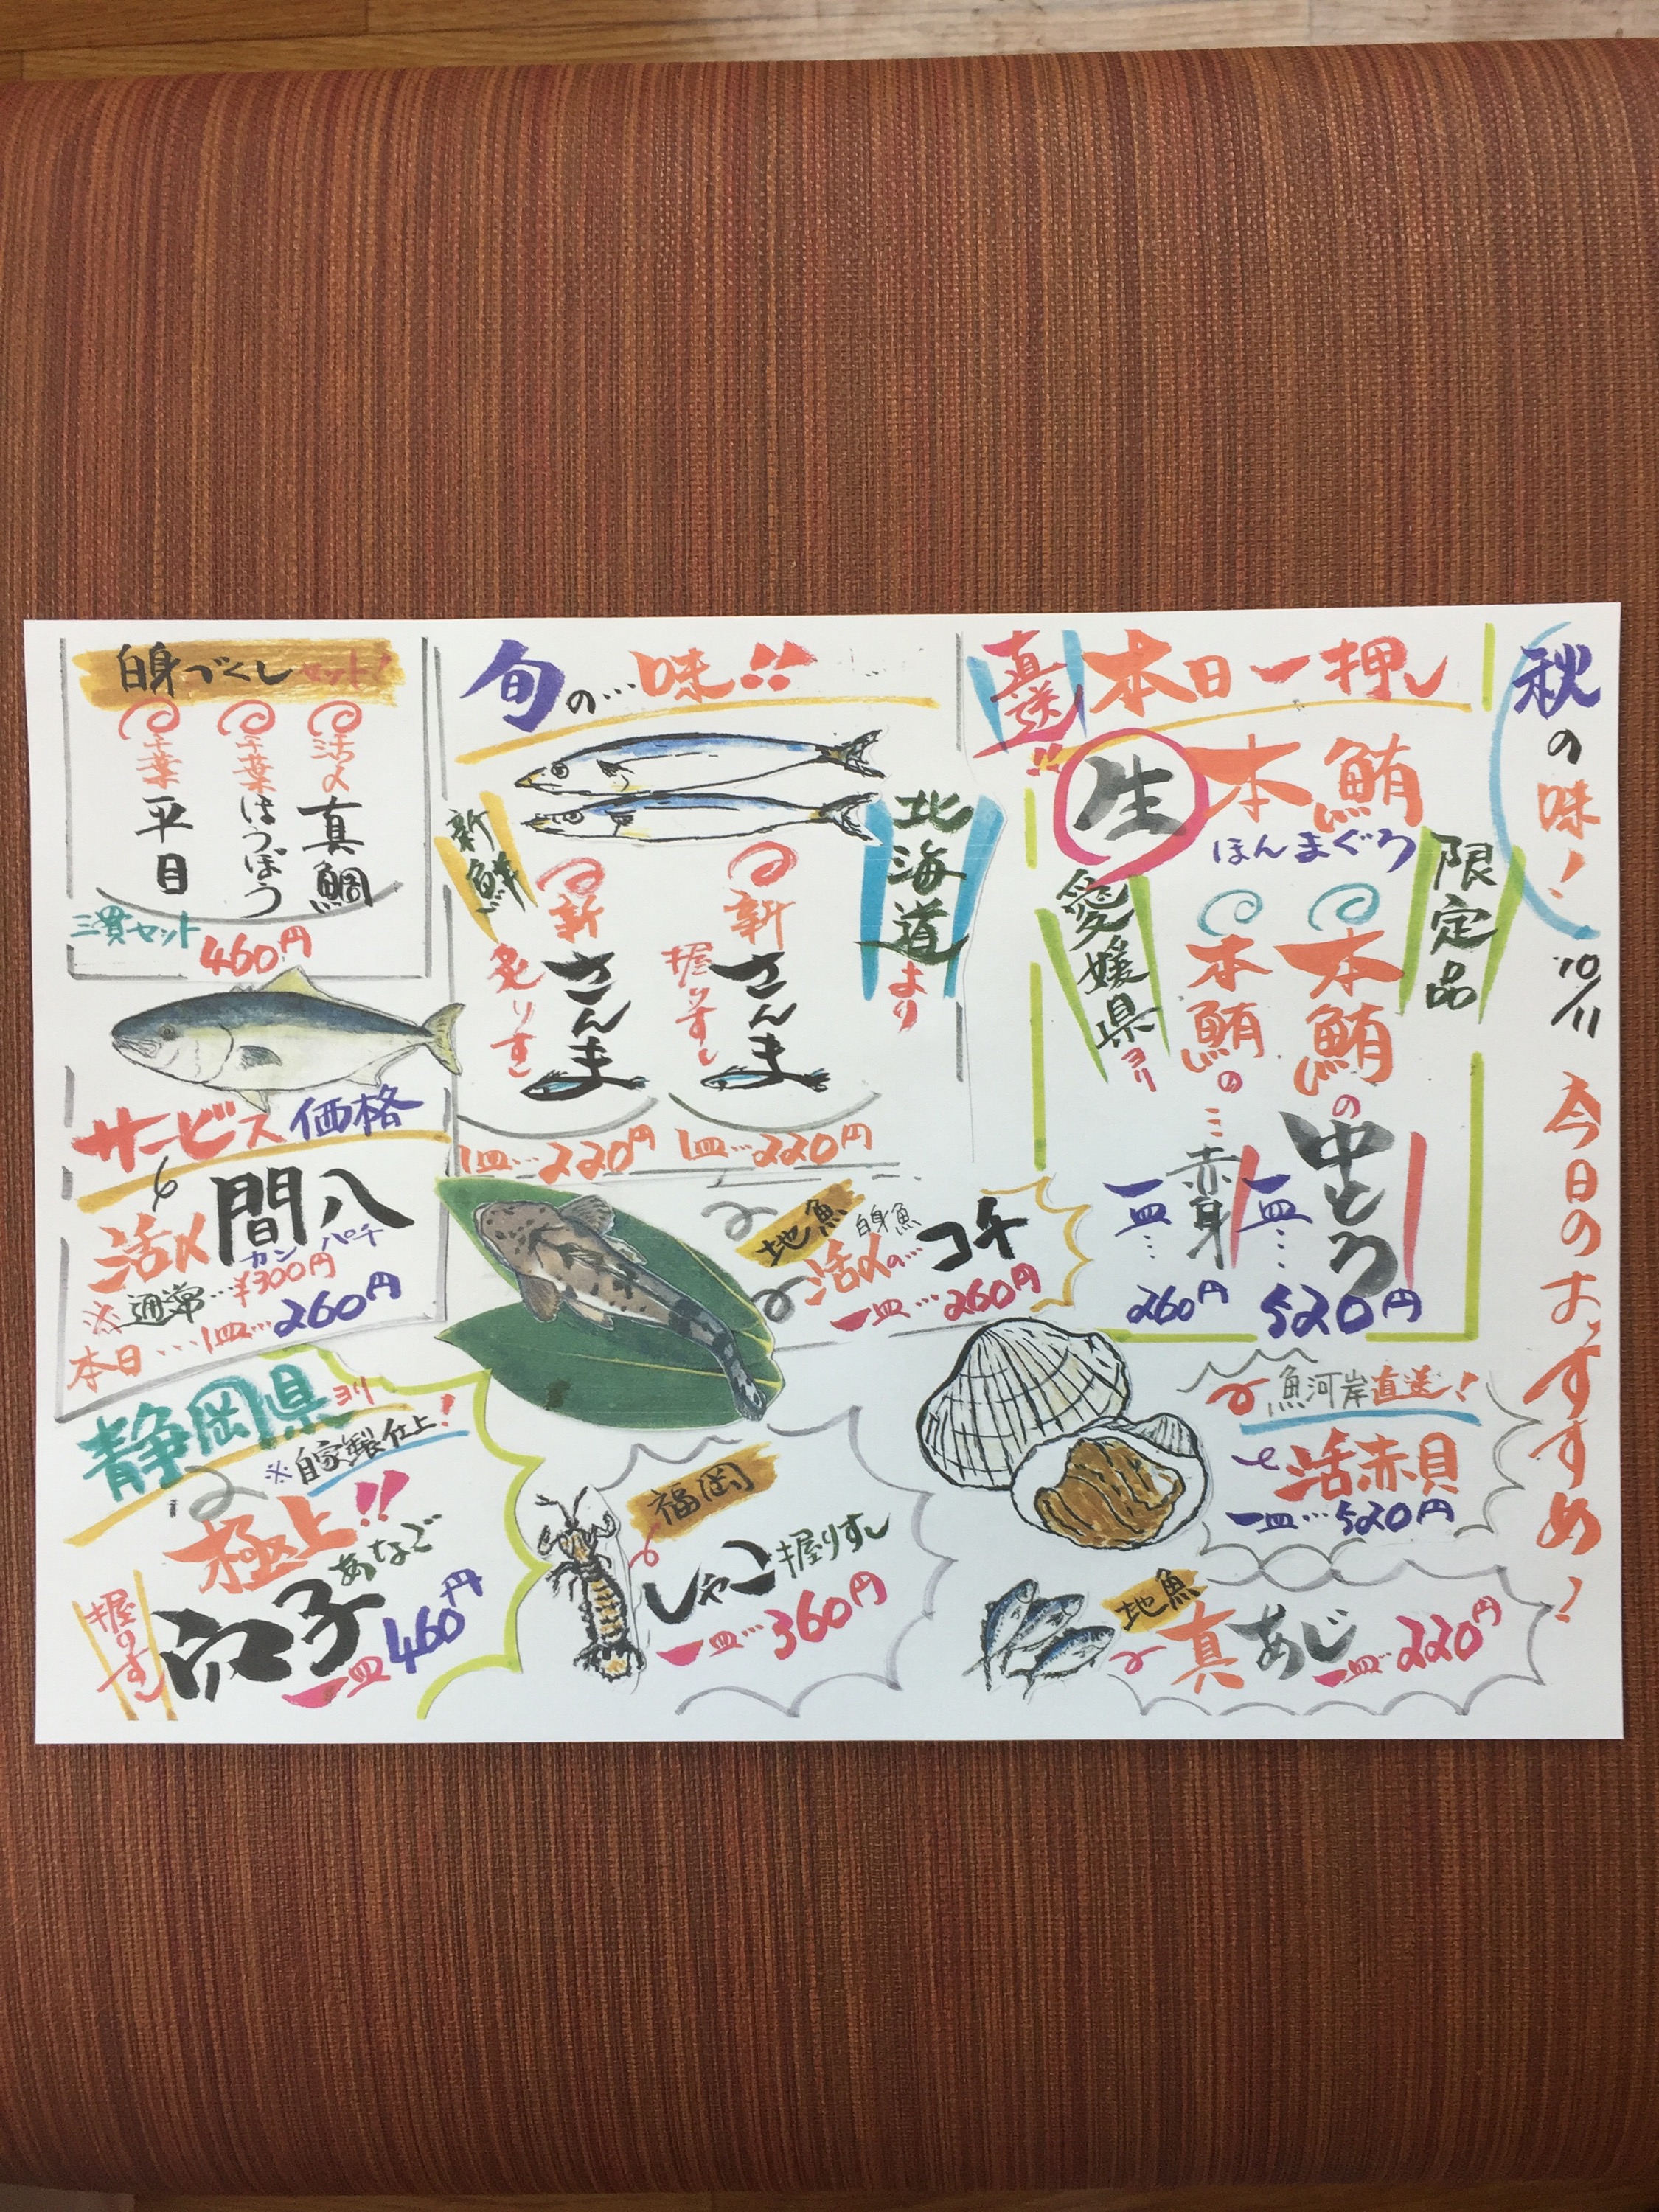 秋の味！
10/11
今日のおすすめ！
本日一押し
直送!!
生本鮪
ほんまぐろ
限定品
愛媛県ヨリ
本鮪の中とろ
一皿…520円
本鮪の…赤身
一皿…260円
旬の…味!!
北海道より
新鮮
新さんま
握りすし
1皿…220円
新さんま
炙りすし
1皿…220円
白身づくしセット！
活〆真鯛
千葉ほうぼう
千葉平目
三貫セット
460円
サービス価格
活〆間八
カンパチ
※通常…¥300円
本日…1皿…260円
地魚
白身魚
活〆の…コチ
一皿…260円
魚河岸直送！
活赤貝
一皿…520円
地魚
真あじ
一皿…220円
福岡
しゃこ握りすし
一皿…360円
静岡県ヨリ
※自家製仕上！
極上!!
あなご
穴子
握りすし
一皿460円